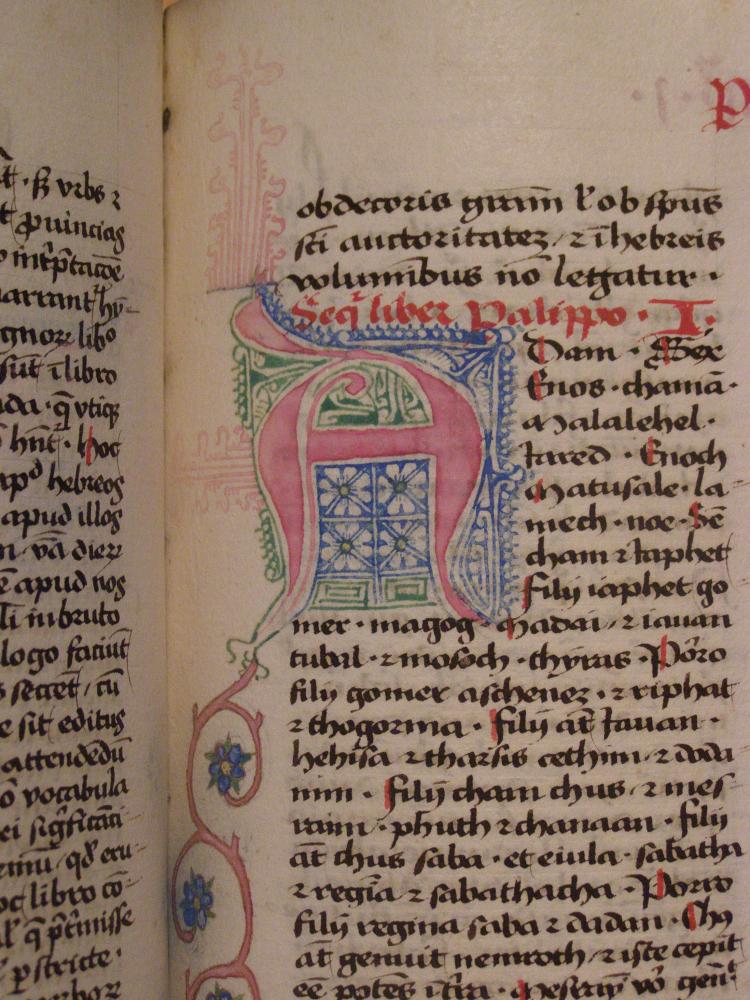 vrbs ⁊
ꝓuincias
int̄p̄tac̄oe
narrant hy-
gnorez libo
sūt ī libro
ada · q̄ vtiqꝫ
hn̄t · hoc
apᵈ hebreos
apud illos
vā dierꝫ
ē apud nos
in bruto
logo faciūt
secret / cū
e sit editus
attendēdū
vocabula
ei sigficāti-
qd̄ eru-
oc libro cō-
q̄ p̄rmisse
ꝑstricte ·
P
ob decoris gr̄am l' ob sp̄us
sc̄i auctoritateꝫ ⁊ ī hebreis
volumībus nō legatur ·
Seq̄ liber Palippo · I ·
A
Dam · Sex
Enos · chainā
Malalehel ·
Jared · Enoch
Matusale · la-
mech · noe · Sē
cham ⁊ Iaphet
filij iaphet go
mer · magog · Madai ⁊ iauan
tubal · ⁊ mosoch · thyras · Porro
filij gomer aschenez · ⁊ riphat
⁊ thogorma · filij āt Iauan ·
helisa ⁊ tharsis cethim ⁊ doda
nim · filij cham chus ⁊ mes-
raim · phuth ⁊ chanaan · filij
āt chus saba · et eiula · sabatha
⁊ regīa ⁊ sabathacha · Porro
filij regma saba ⁊ dadan · Chꝰ
āt genuit nemroth ⁊ iste cepit
eē potēs ī t̄ra · Mesraym vo gen̄t